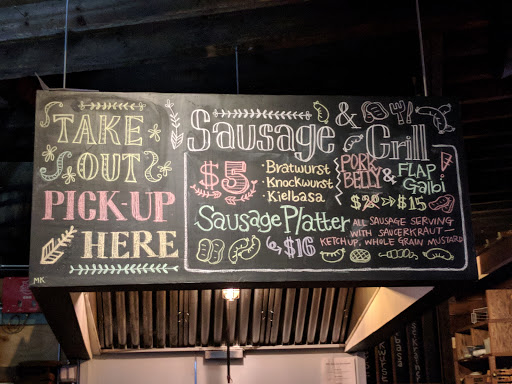 TAKE
OUT
PICK-UP
HERE
MK
Sausage &
Grill
$5
· Bratwurst
· Knockwurst
· Kielbasa
PORK
BELLY
&
FLAP
Galbi
$15
Sausage Platter
$16
ALL SAUSAGE SERVING
WITH SAUERKRAUT —
KETCHUP, WHOLE GRAIN MUSTARD